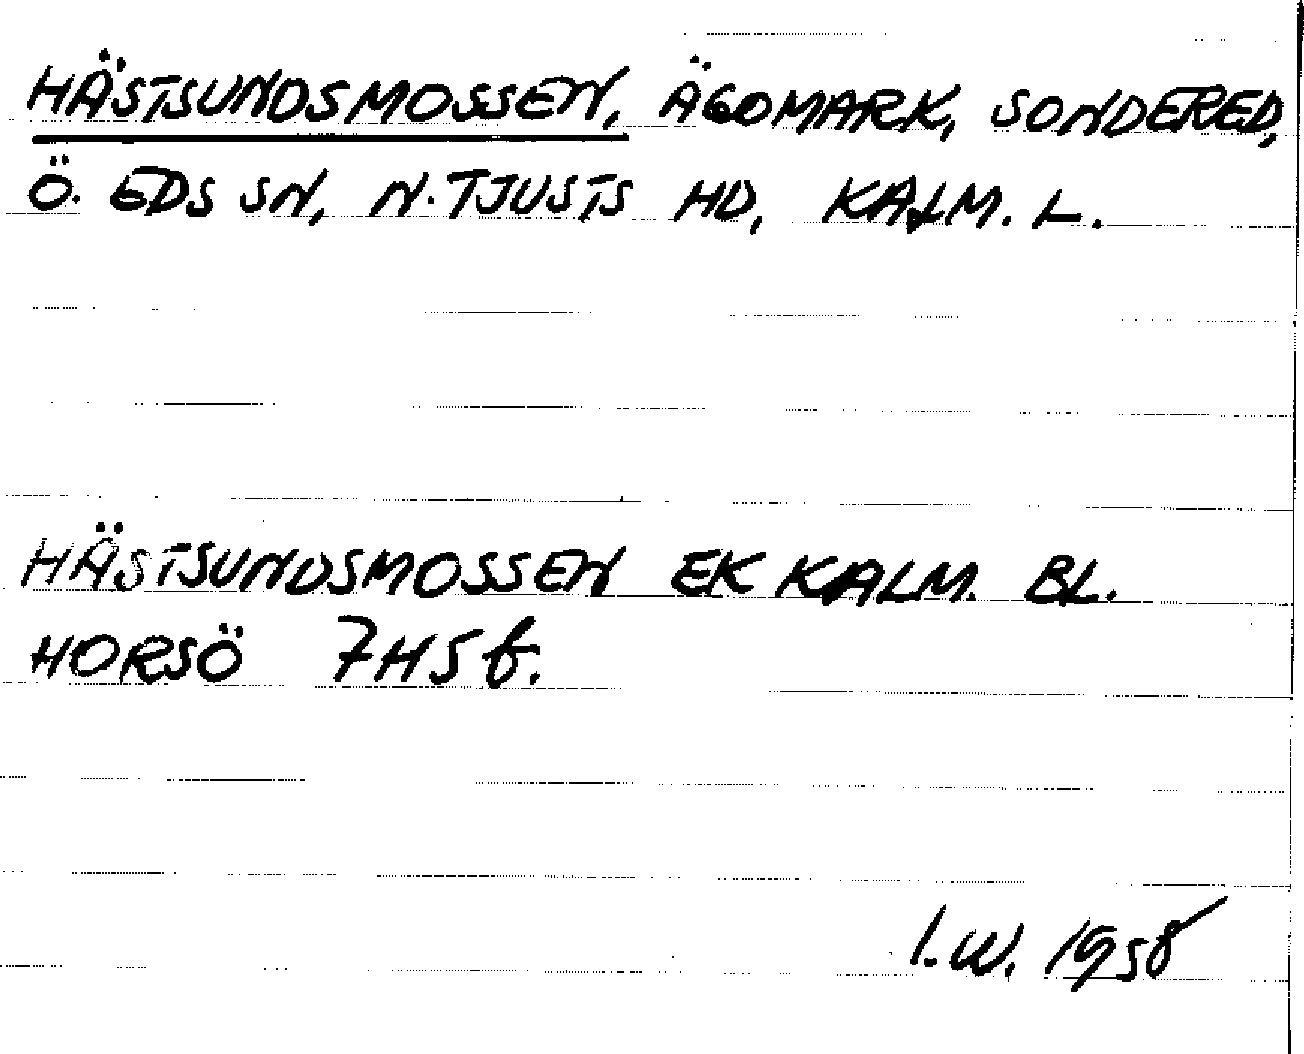 HÄSTSUNDSMOSSEN, ÄGOMARK, SONDERED,
Ö. EDS SN, N. TJUSTS HD, KALM. L.
HÄSTSUNDSMOSSEN EK KALM. BL.
HORSÖ 7H5f.
I.W. 1958